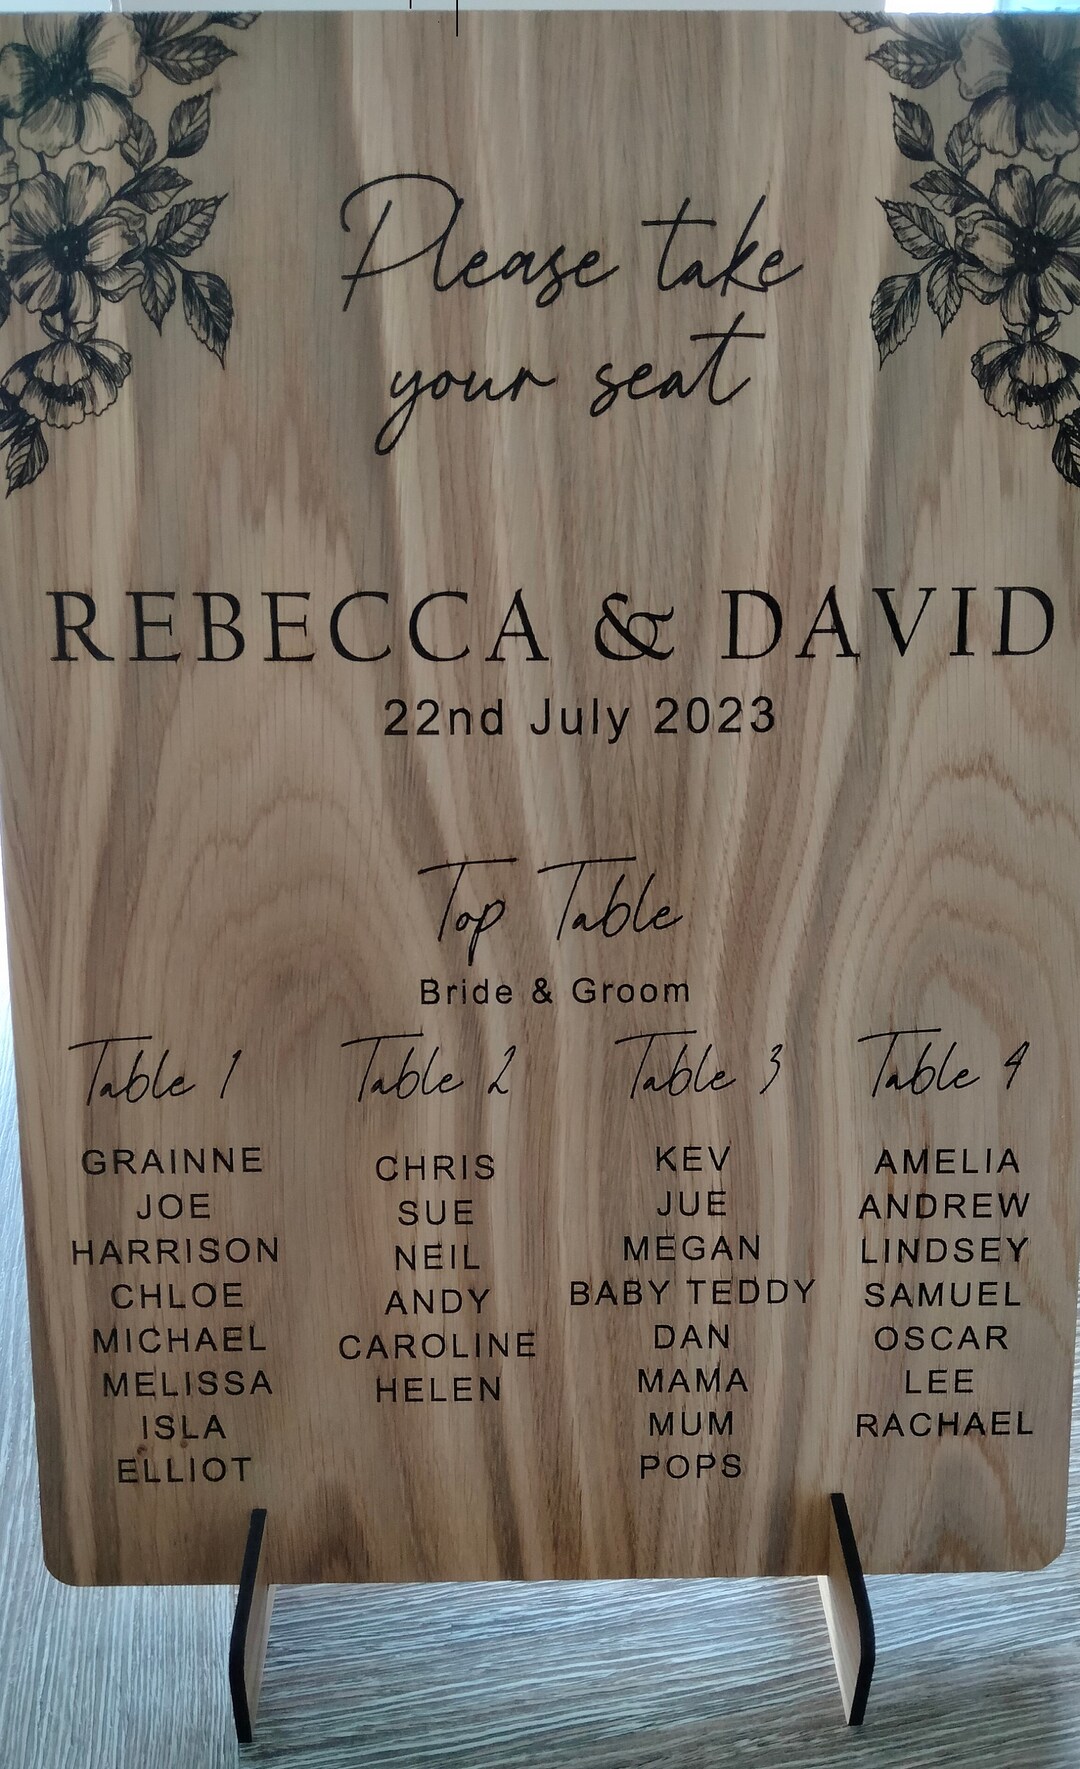 Please take
your seat
REBECCA & DAVID
22nd July 2023
Top Table
Bride & Groom
Table 1
GRAINNE
JOE
HARRISON
CHLOE
MICHAEL
MELISSA
ISLA
ELLIOT
Table 2
CHRIS
SUE
NEIL
ANDY
CAROLINE
HELEN
Table 3
KEV
JUE
MEGAN
BABY TEDDY
DAN
MAMA
MUM
POPS
Table 4
AMELIA
ANDREW
LINDSEY
SAMUEL
OSCAR
LEE
RACHAEL